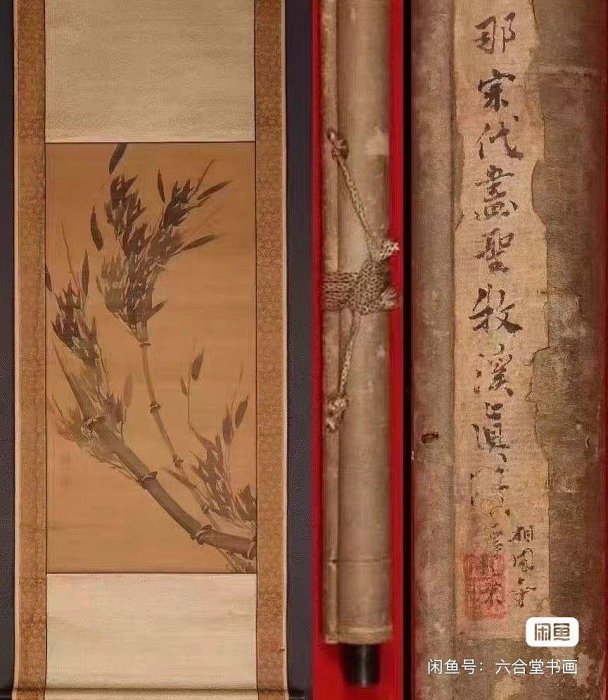 那宋代畫聖牧溪真
相國寺
闲鱼
闲鱼号：六合堂书画